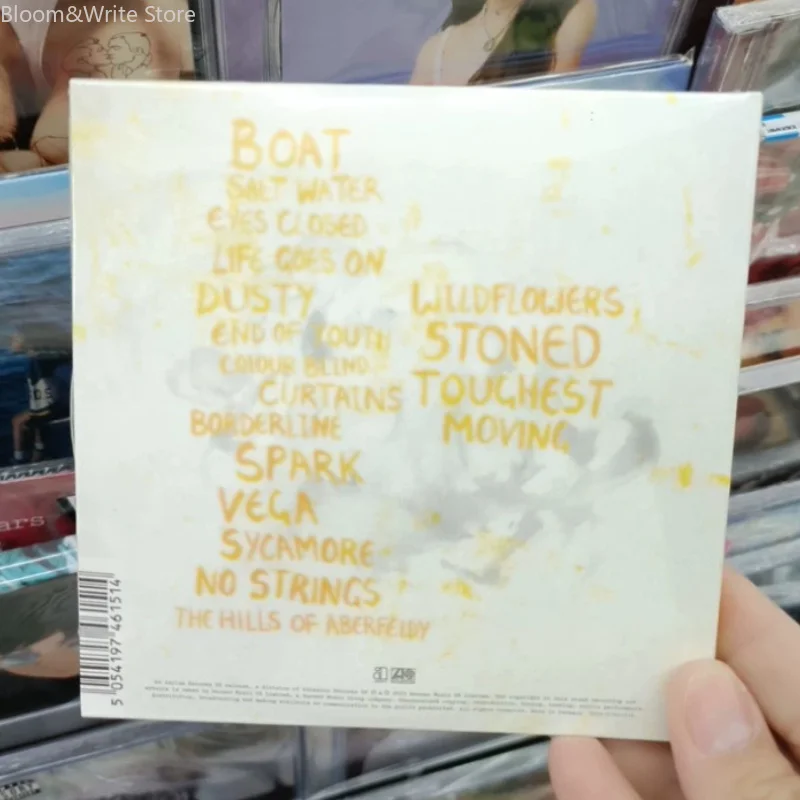 Bloom&Write Store
BOAT
SALT WATER
EYES CLOSED
LIFE GOES ON
DUSTY
END OF YOUTH
COLOUR BLIND
CURTAINS
BORDERLINE
SPARK
VEGA
SYCAMORE
NO STRINGS
THE HILLS OF ABERFELDY
WILDFLOWERS
STONED
TOUGHEST
MOVING
5 054197 461514
ars